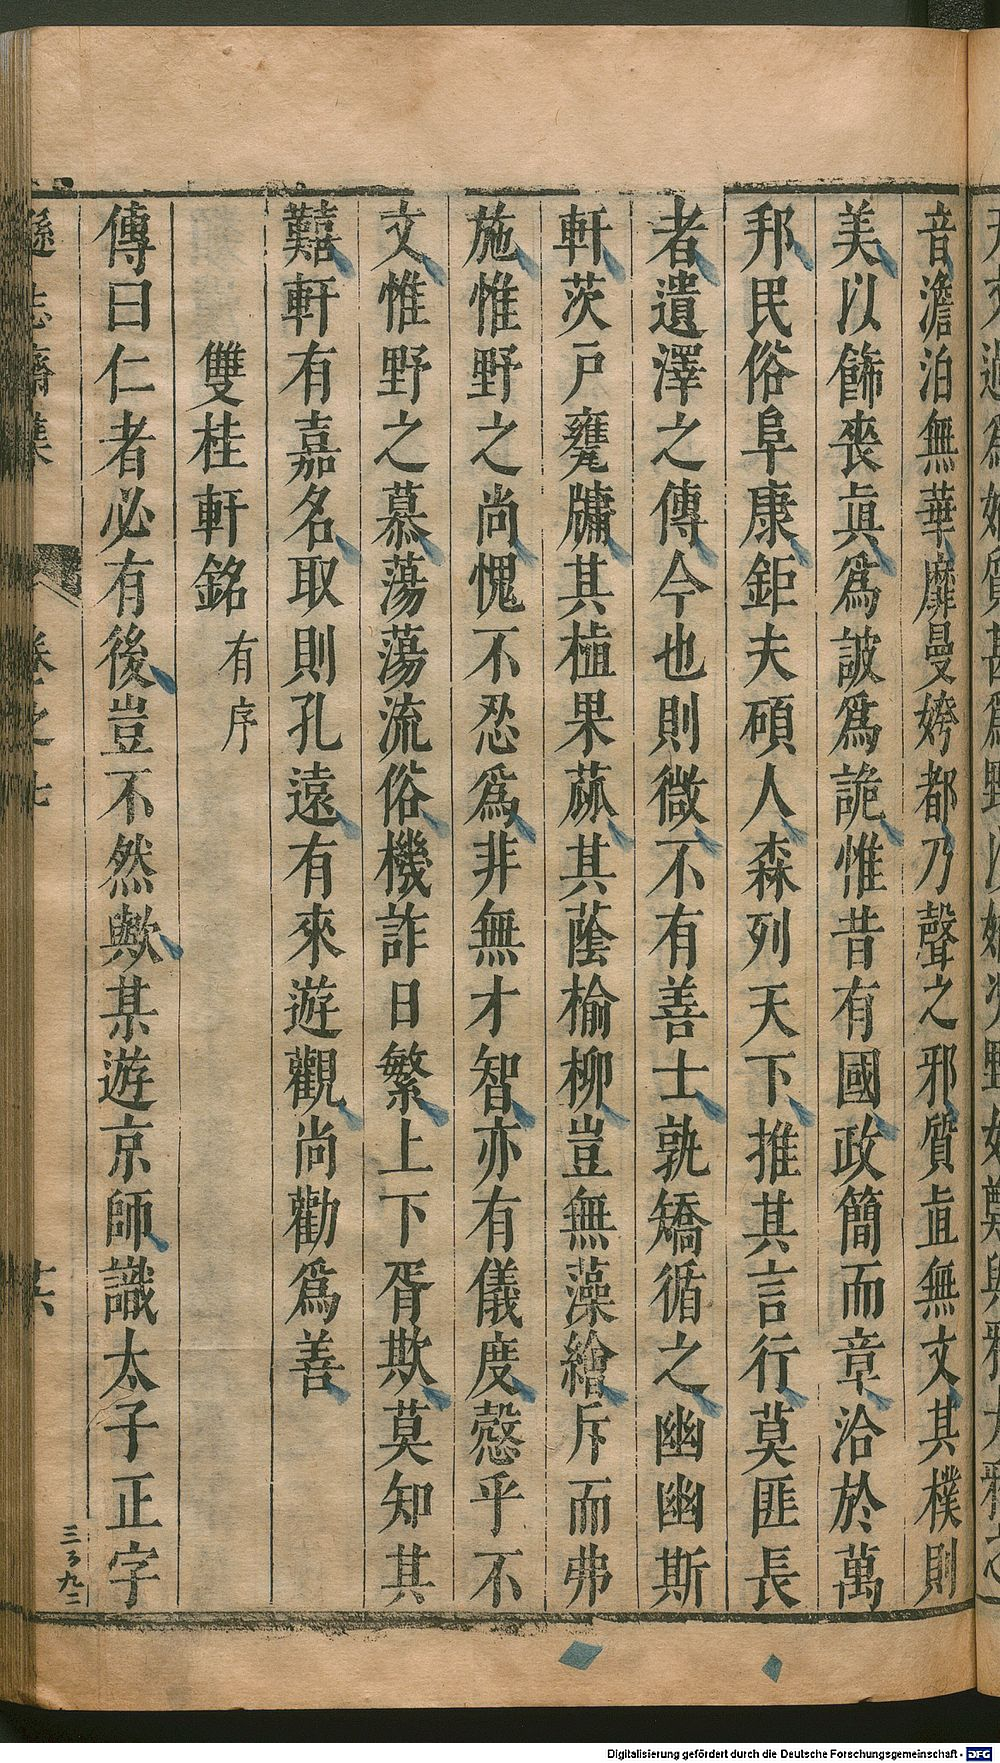 音澹泊無華靡曼姱都乃聲之邪質直無文其樸則
美以飾喪眞爲詖爲詭惟昔有國政簡而章洽於萬
邦民俗阜康鉅夫碩人森列天下推其言行莫匪長
者遺澤之傳今也則微不有善士孰矯循之幽幽斯
軒茨戶甕牗其植果蓏其蔭榆柳豈無藻繪斥而弗
施惟野之尚愧不忍爲非無才智亦有儀度愨乎不
文惟野之慕蕩蕩流俗機詐日繁上下胥欺莫知其
囏軒有嘉名取則孔遠有來遊觀尚勸爲善
雙桂軒銘 有序
傳曰仁者必有後豈不然歟某遊京師識太子正字
遜志齋集 卷之七 廿六
三〇九二
Digitalisierung gefördert durch die Deutsche Forschungsgemeinschaft - DFG